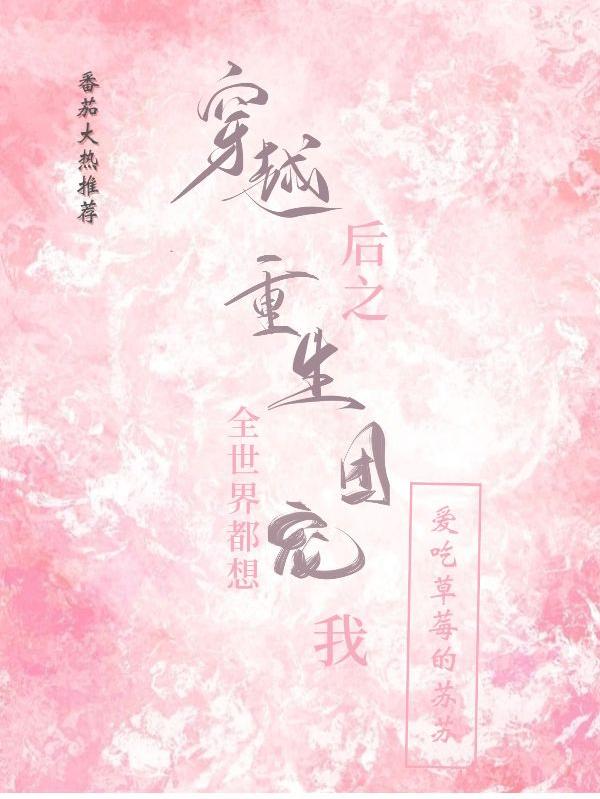 番茄大热推荐
穿越
后之
重生
全世界都想
团宠
我
爱吃草莓的苏苏